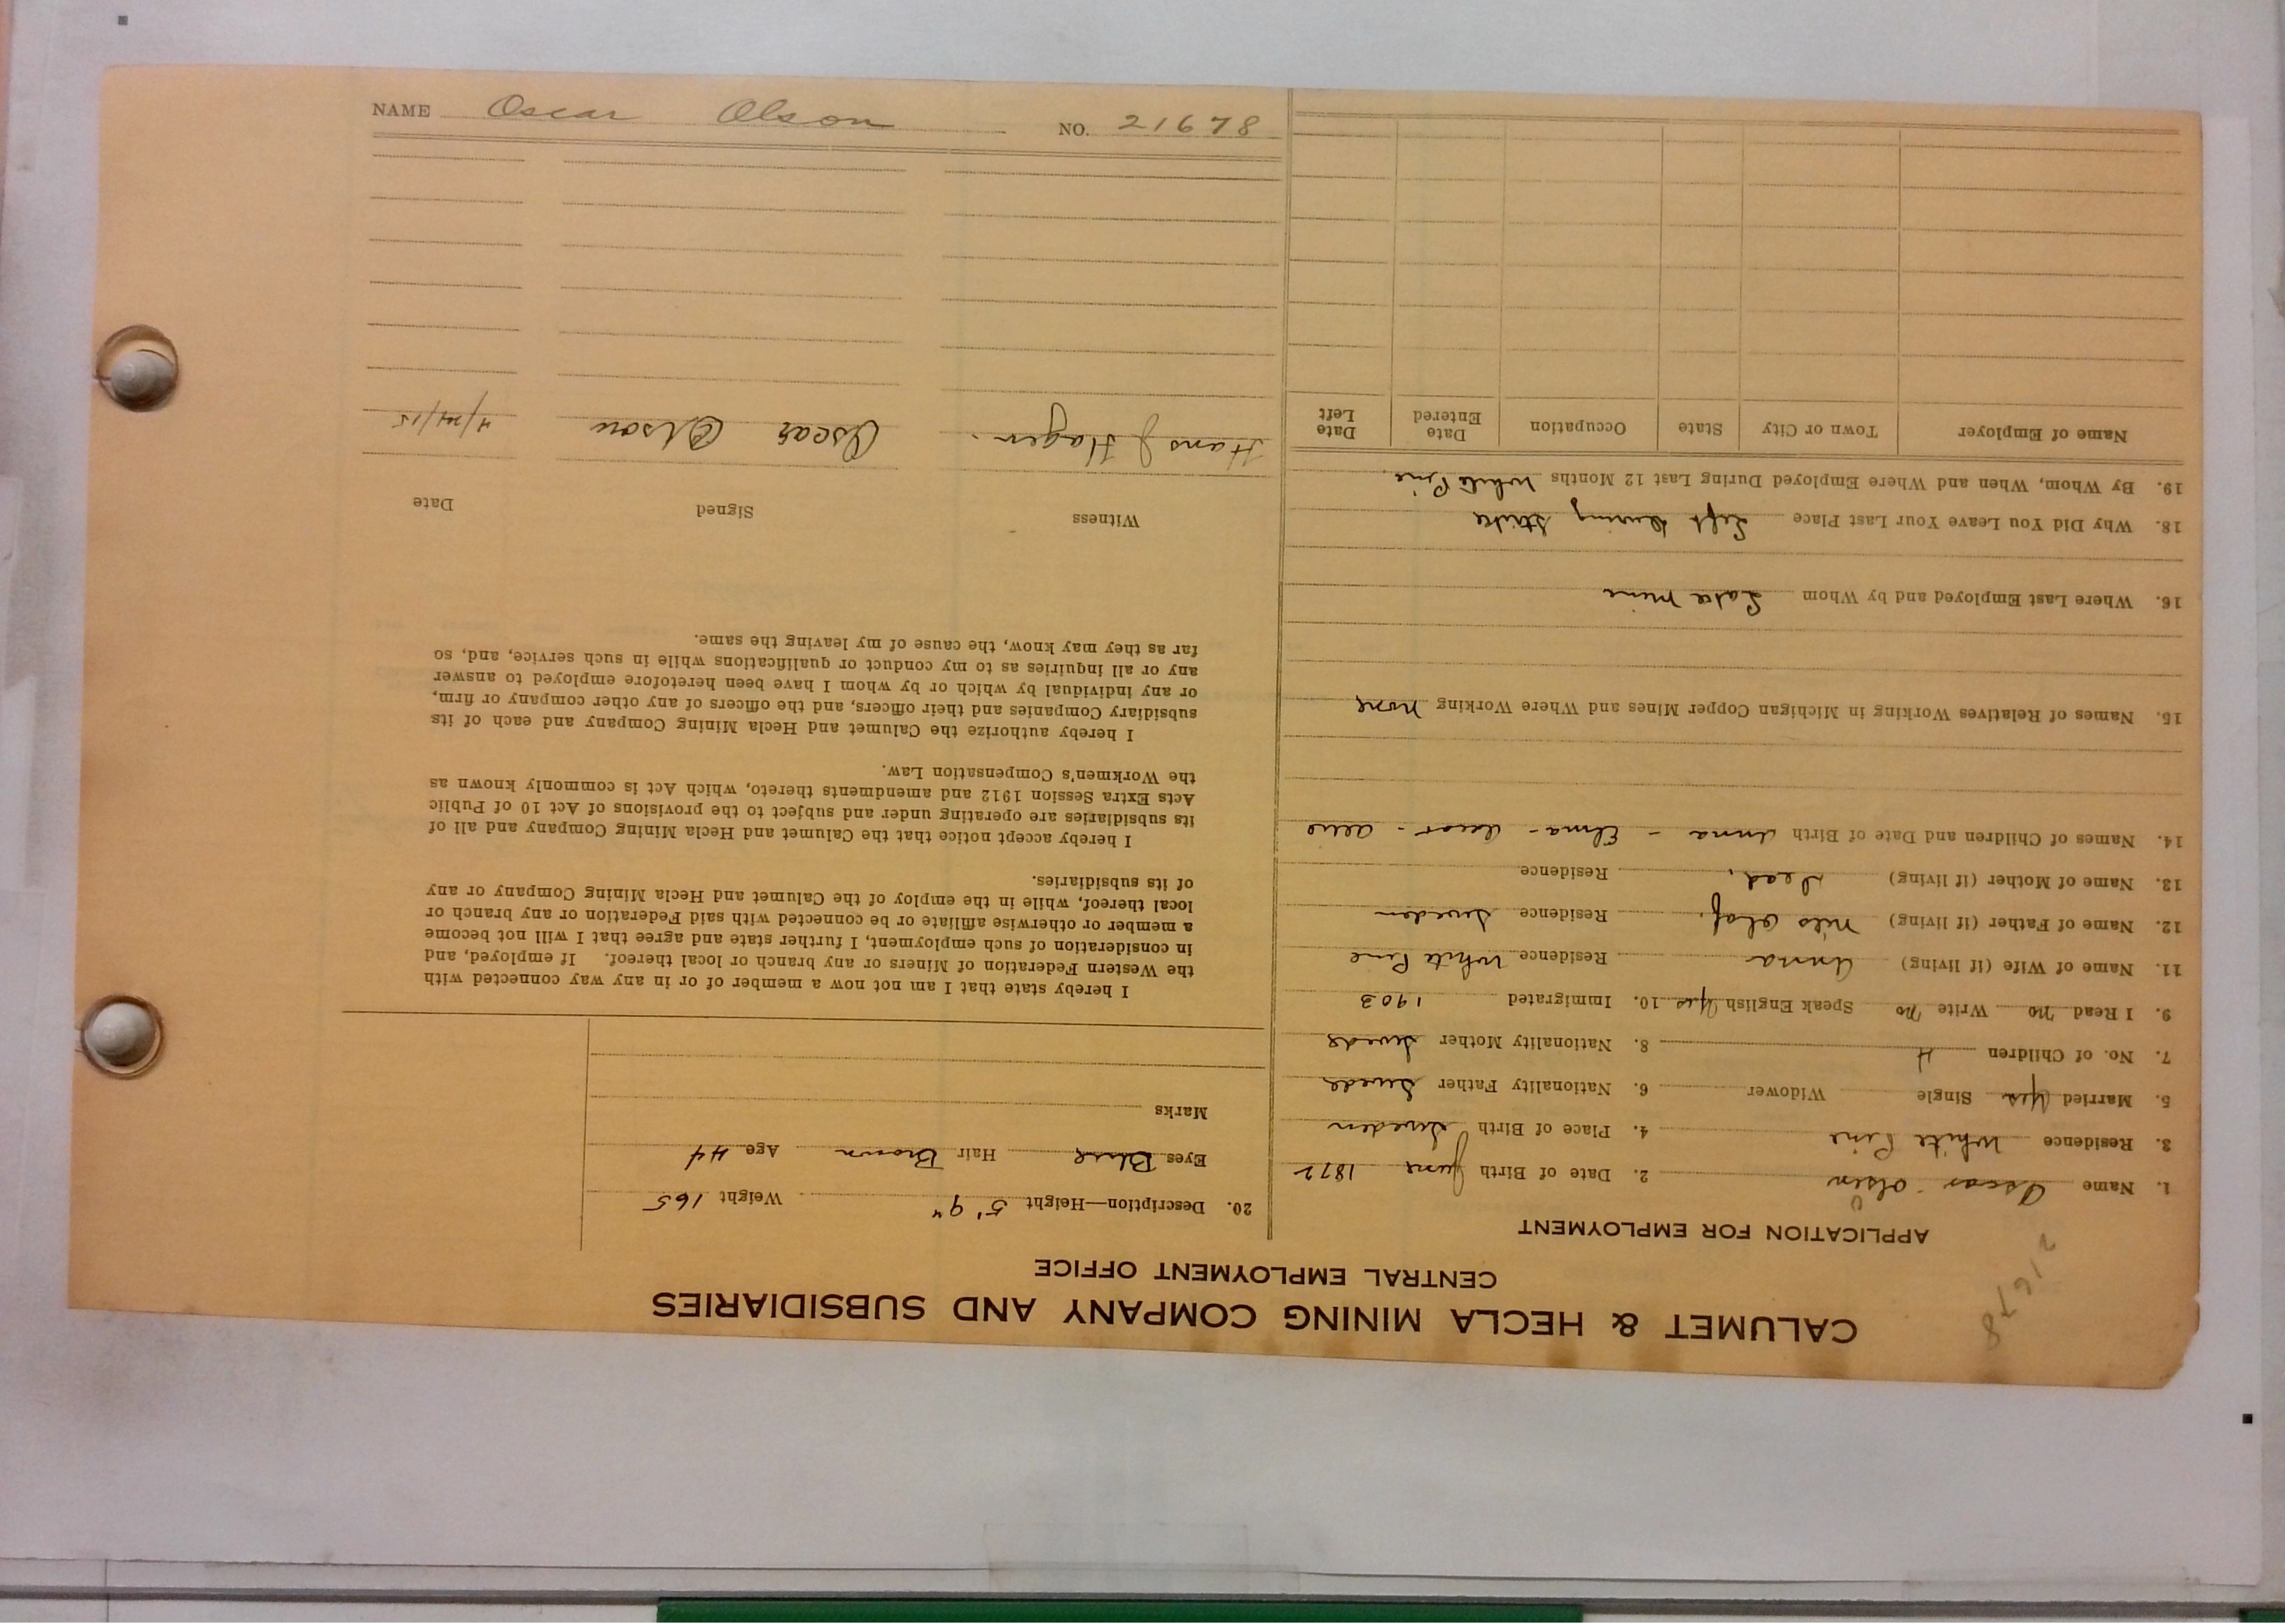 CALUMET & HECLA MINING COMPANY AND SUBSIDIARIES
CENTRAL EMPLOYMENT OFFICE
21678
APPLICATION FOR EMPLOYMENT
1. Name Oscar Olsen 2. Date of Birth June 1872
3. Residence White Pine 4. Place of Birth Sweden
5. Married Yes Single Widower 6. Nationality Father Swede
7. No. of Children 4 8. Nationality Mother Swede
9. I Read No Write No Speak English Yes 10. Immigrated 1903
11. Name of Wife (if living) Anna Residence White Pine
12. Name of Father (if living) Nils Olof. Residence Sweden
13. Name of Mother (if living) Dead. Residence
14. Names of Children and Date of Birth Anna - Elma -
15. Names of Relatives Working in Michigan Copper Mines and Where Working None
16. Where Last Employed and by Whom Lake Mine
18. Why Did You Leave Your Last Place Left during strike
19. By Whom, When and Where Employed During Last 12 Months White Pine.
Name of Employer Town or City State Occupation Date Entered Date Left
20. Description—Height 5' 9" Weight 165
Eyes Blue Hair Brown Age 44
Marks
I hereby state that I am not now a member of or in any way connected with
the Western Federation of Miners or any branch or local thereof. If employed, and
in consideration of such employment, I further state and agree that I will not become
a member or otherwise affiliate or be connected with said Federation or any branch or
local thereof, while in the employ of the Calumet and Hecla Mining Company or any
of its subsidiaries.
I hereby accept notice that the Calumet and Hecla Mining Company and all of
its subsidiaries are operating under and subject to the provisions of Act 10 of Public
Acts Extra Session 1912 and amendments thereto, which Act is commonly known as
the Workmen's Compensation Law.
I hereby authorize the Calumet and Hecla Mining Company and each of its
subsidiary Companies and their officers, and the officers of any other company or firm,
or any individual by which or by whom I have been heretofore employed to answer
any or all inquiries as to my conduct or qualifications while in such service, and, so
far as they may know, the cause of my leaving the same.
Witness Signed Date
Hans J Hagen. Oscar Olson 4/24/15
NAME Oscar Olson NO. 21678